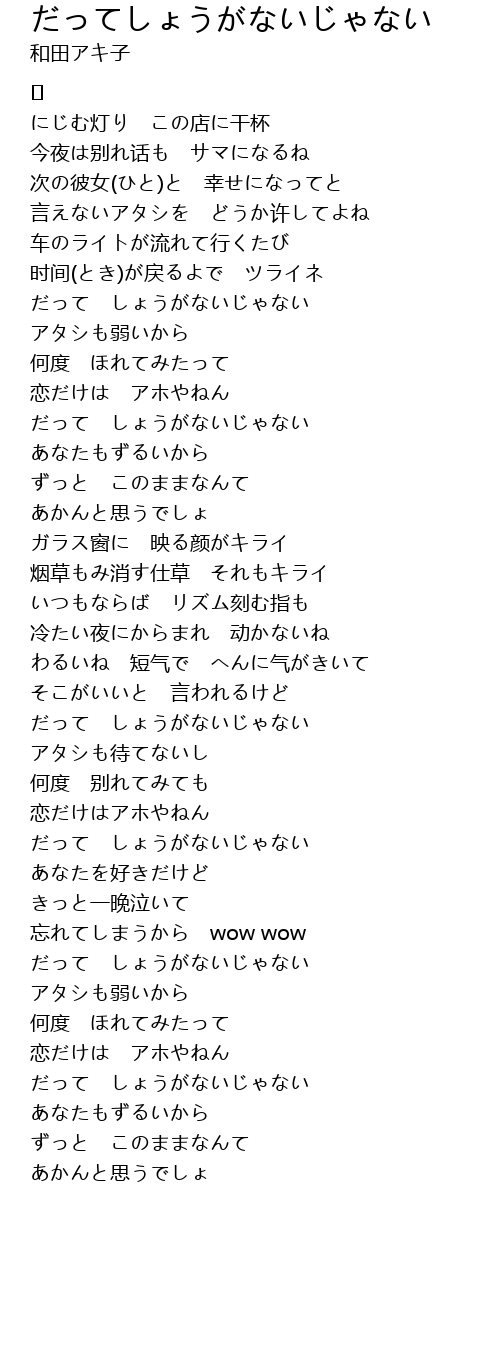 だってしょうがないじゃない
和田アキ子
にじむ灯り　この店に干杯
今夜は别れ话も　サマになるね
次の彼女(ひと)と　幸せになってと
言えないアタシを　どうか许してよね
车のライトが流れて行くたび
时间(とき)が戻るよで　ツライネ
だって　しょうがないじゃない
アタシも弱いから
何度　ほれてみたって
恋だけは　アホやねん
だって　しょうがないじゃない
あなたもずるいから
ずっと　このままなんて
あかんと思うでしょ
ガラス窗に　映る颜がキライ
烟草もみ消す仕草　それもキライ
いつもならば　リズム刻む指も
冷たい夜にからまれ　动かないね
わるいね　短气で　へんに气がきいて
そこがいいと　言われるけど
だって　しょうがないじゃない
アタシも待てないし
何度　别れてみても
恋だけはアホやねん
だって　しょうがないじゃない
あなたを好きだけど
きっと一晚泣いて
忘れてしまうから　wow wow
だって　しょうがないじゃない
アタシも弱いから
何度　ほれてみたって
恋だけは　アホやねん
だって　しょうがないじゃない
あなたもずるいから
ずっと　このままなんて
あかんと思うでしょ